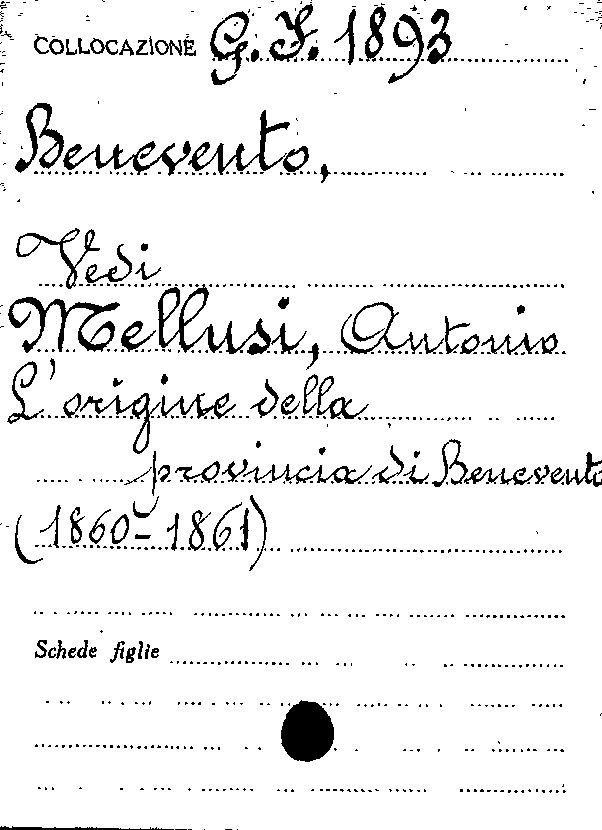 COLLOCAZIONE G. J. 1893
Benevento,
Vedi
Mellusi, Antonio
L'origine della
provincia di Benevento
(1860-1861)
Schede figlie